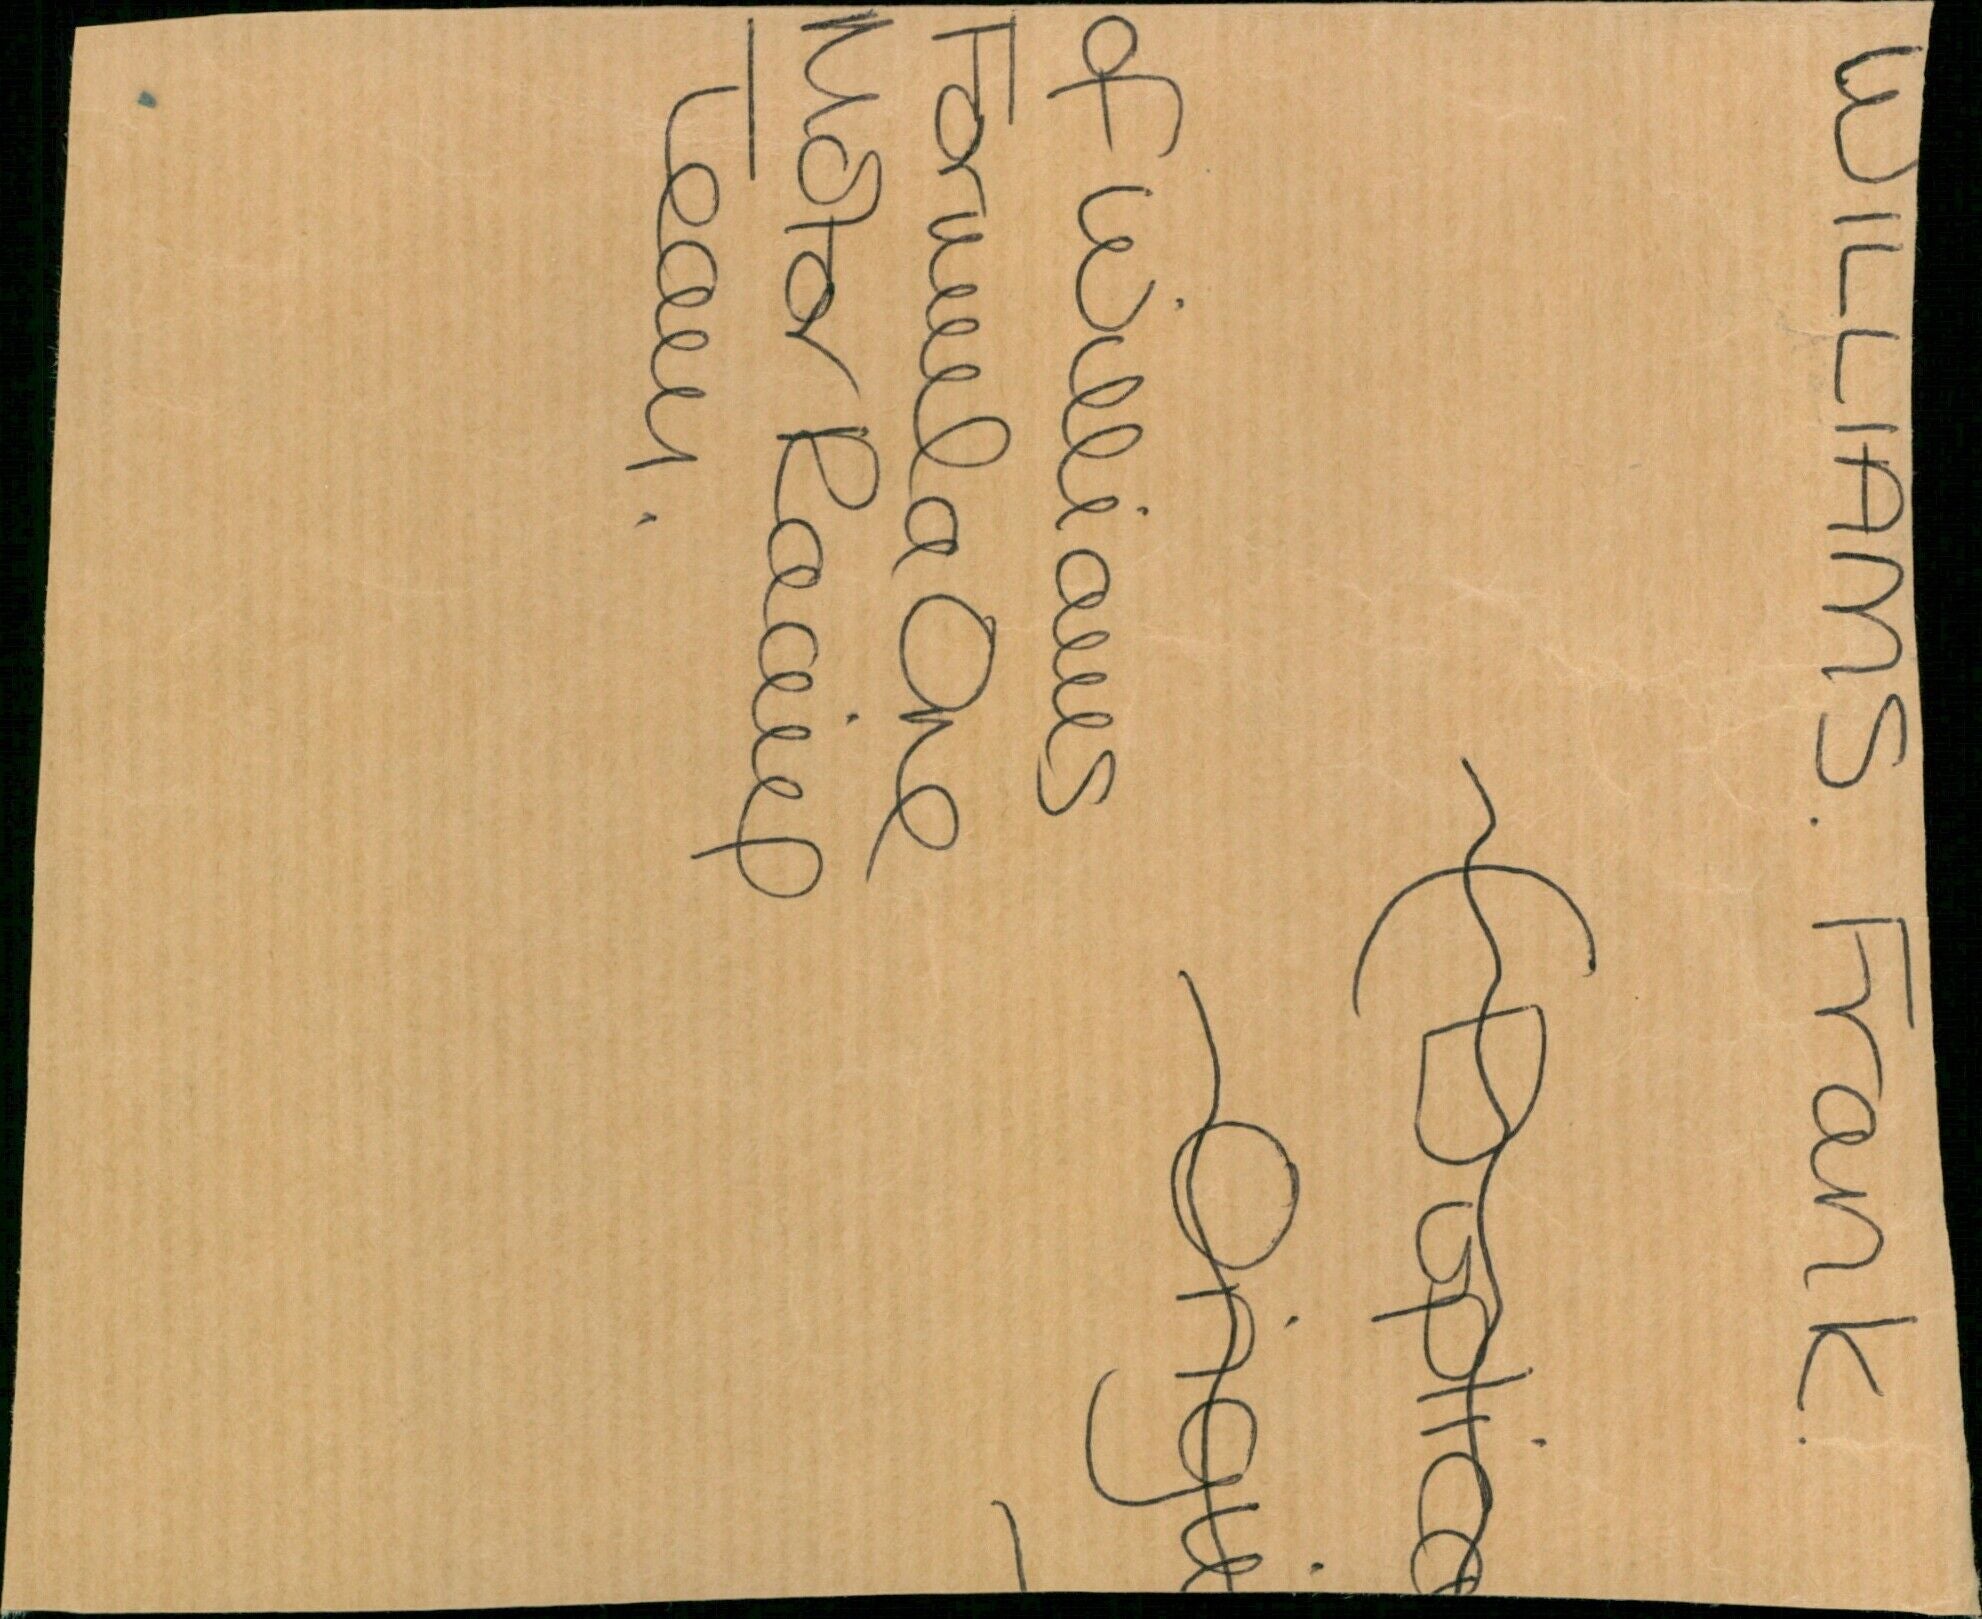 WILLIAMS. Frank.
of Williams
Formula One
Motor Racing
Team.